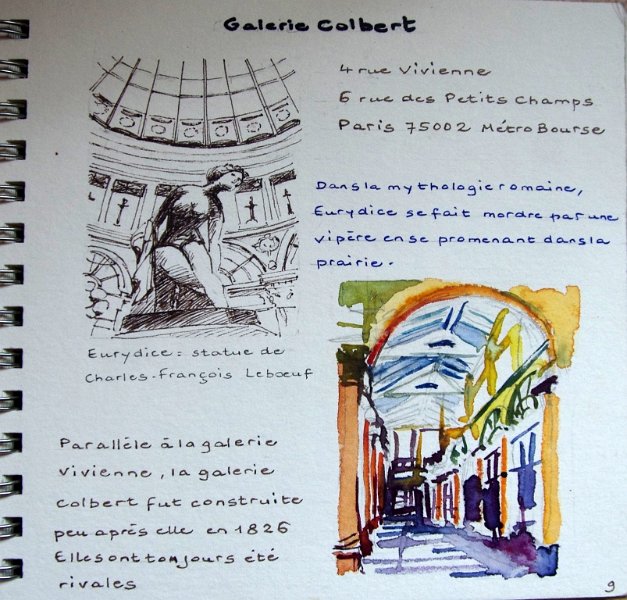 Galerie Colbert
4 rue Vivienne
6 rue des Petits Champs
Paris 75002 Métro Bourse
Dans la mythologie romaine,
Eurydice se fait mordre par une
vipère en se promenant dans la
prairie.
Eurydice : statue de
Charles-François Lebœuf
Parallèle à la galerie
Vivienne, la galerie
Colbert fut construite
peu après elle en 1826
Elles ont toujours été
rivales
9